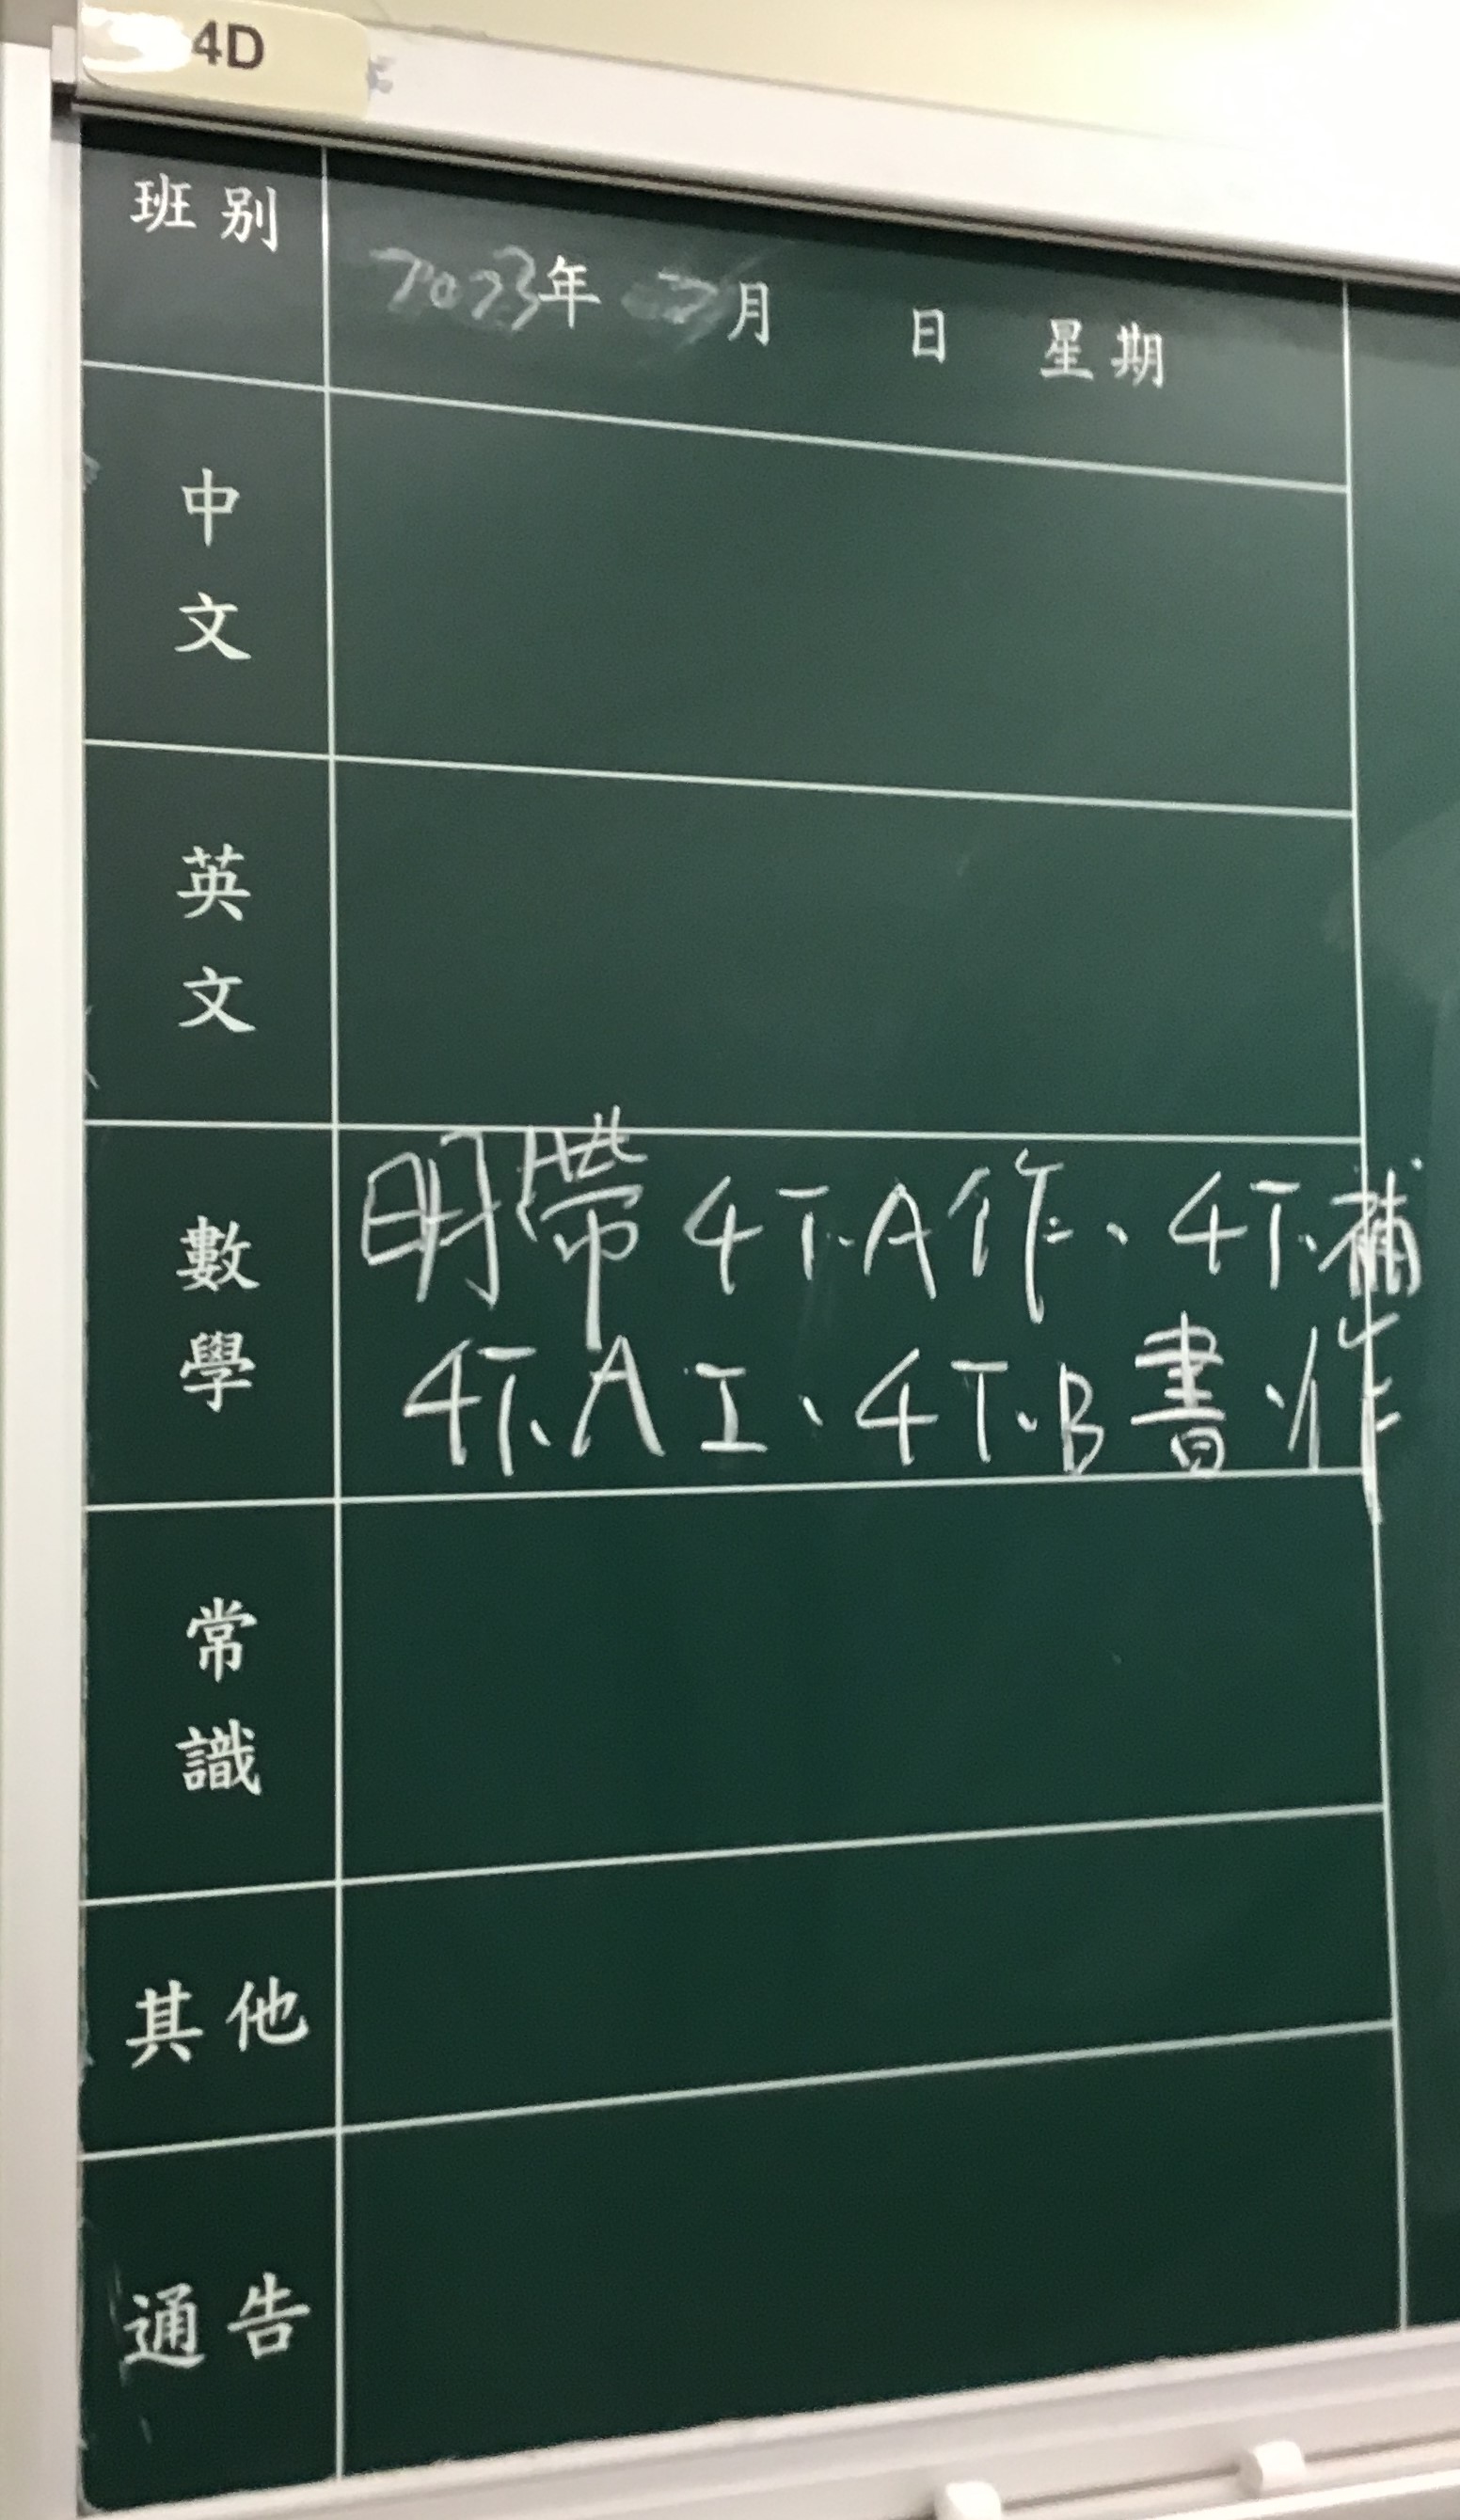 4D
班別
2023年 月 日 星期
中文
英文
數學
明帶4下A作、4下補
4下A工、4下B書、作
常識
其他
通告